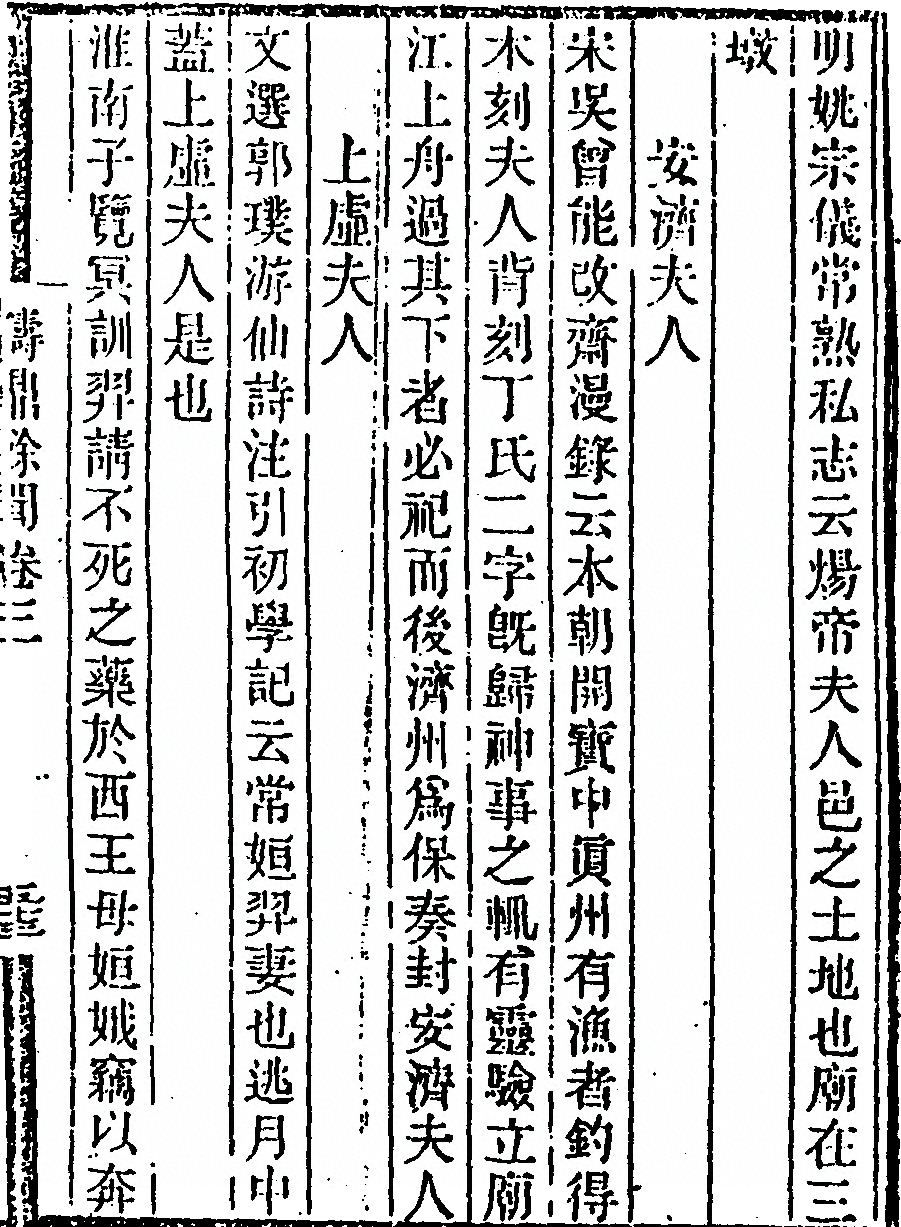 明姚宗儀常熟私志云煬帝夫人邑之土地也廟在三
墩
安濟夫人
宋吳曾能改齋漫錄云本朝開寶中眞州有漁者釣得
木刻夫人背刻丁氏二字旣歸神事之輒有靈驗立廟
江上舟過其下者必祀而後濟州爲保奏封安濟夫人
上虛夫人
文選郭璞游仙詩注引初學記云常姮羿妻也逃月中
蓋上虛夫人是也
淮南子覽冥訓羿請不死之藥於西王母姮娥竊以奔
卷三